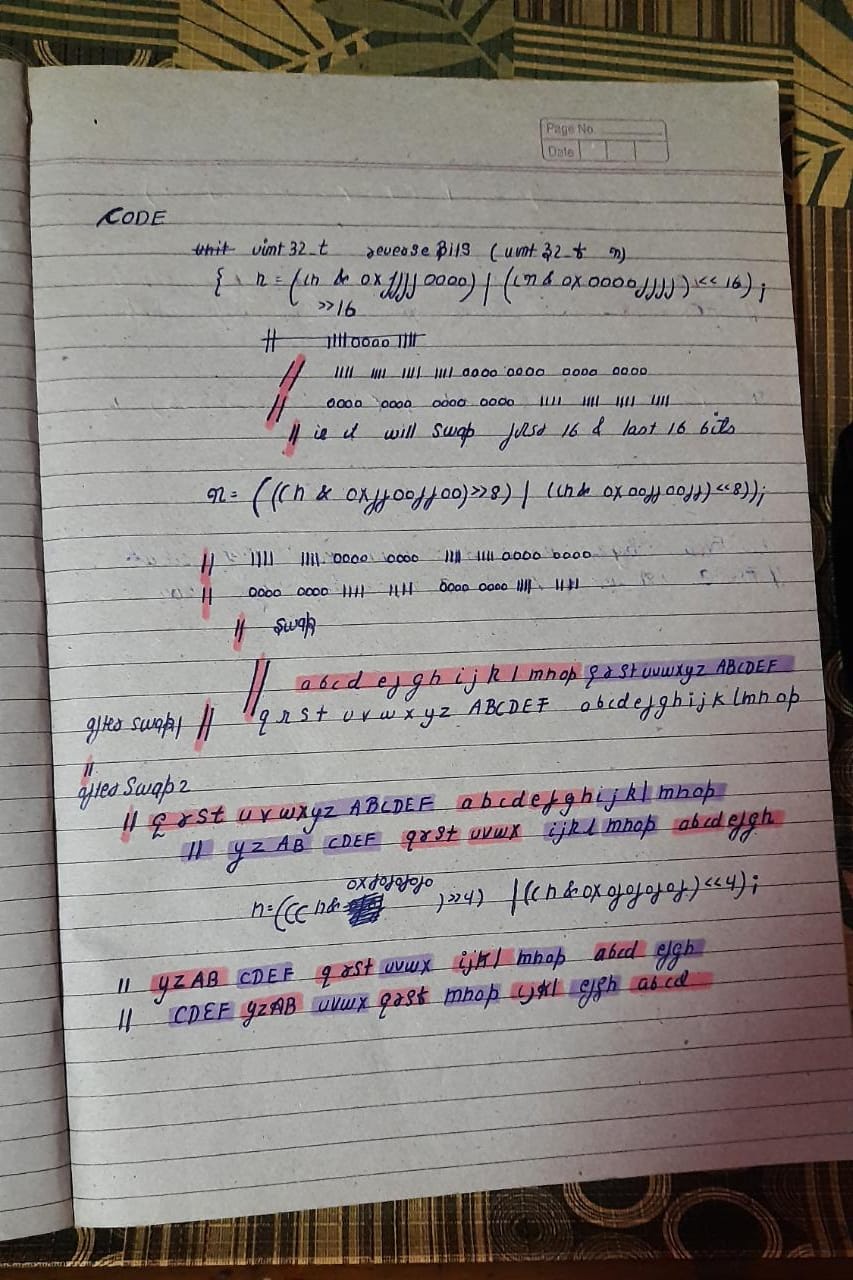 Page No
Date
CODE
unit uint 32_t reverse Bits (uint 32_t n)
{ n = ((n & 0x ffff 0000) | ((n & 0x 0000 ffff) << 16);
>>16
// 11110000 1111
// 1111 1111 1111 1111 0000 0000 0000 0000
// 0000 0000 0000 0000 1111 1111 1111 1111
// ie it will swap first 16 & last 16 bits
n = (((n & 0xff00ff00)>>8) | ((n & 0x00ff00ff)<<8));
// 1111 1111 0000 0000 1111 1111 0000 0000
// 0000 0000 1111 1111 0000 0000 1111 1111
// swap
// abcd efgh ijkl mnop qrst uvwxyz ABCDEF
after swap1 // qrst uvwxyz ABCDEF abcdefghijklmnop
//
after Swap 2
// qrst uvwxyz ABCDEF abcdefghijkl mnop
// yz AB CDEF qrst uvwx ijkl mnop abcd efgh
0xf0f0f0f0
n=((n& )>>4) |((n & 0x0f0f0f0f)<<4);
// yz AB CDEF qrst uvwx ijkl mnop abcd efgh
// CDEF yzAB uvwx qrst mnop ijkl efgh abcd